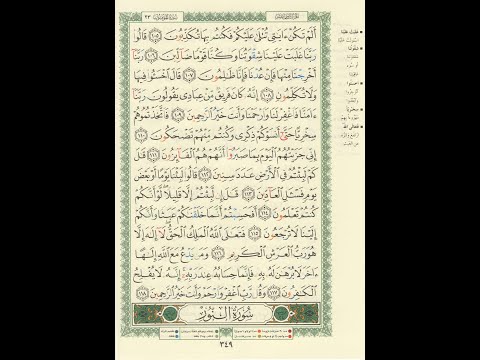 سُورَةُ المُؤْمِنُونَ ٢٣
أَلَمْ تَكُنْ ءَايَٰتِى تُتْلَىٰ عَلَيْكُمْ فَكُنتُم بِهَا تُكَذِّبُونَ ١٠٥ قَالُوا۟
رَبَّنَا غَلَبَتْ عَلَيْنَا شِقْوَتُنَا وَكُنَّا قَوْمًا ضَآلِّينَ ١٠٦ رَبَّنَآ
أَخْرِجْنَا مِنْهَا فَإِنْ عُدْنَا فَإِنَّا ظَٰلِمُونَ ١٠٧ قَالَ ٱخْسَـُٔوا۟ فِيهَا
وَلَا تُكَلِّمُونِ ١٠٨ إِنَّهُۥ كَانَ فَرِيقٌ مِّنْ عِبَادِى يَقُولُونَ رَبَّنَآ
ءَامَنَّا فَٱغْفِرْ لَنَا وَٱرْحَمْنَا وَأَنتَ خَيْرُ ٱلرَّٰحِمِينَ ١٠٩ فَٱتَّخَذْتُمُوهُمْ
سِخْرِيًّا حَتَّىٰٓ أَنسَوْكُمْ ذِكْرِى وَكُنتُم مِّنْهُمْ تَضْحَكُونَ ١١٠
إِنِّى جَزَيْتُهُمُ ٱلْيَوْمَ بِمَا صَبَرُوٓا۟ أَنَّهُمْ هُمُ ٱلْفَآئِزُونَ ١١١ قَٰلَ
كَمْ لَبِثْتُمْ فِى ٱلْأَرْضِ عَدَدَ سِنِينَ ١١٢ قَالُوا۟ لَبِثْنَا يَوْمًا أَوْ بَعْضَ
يَوْمٍ فَسْـَٔلِ ٱلْعَآدِّينَ ١١٣ قَٰلَ إِن لَّبِثْتُمْ إِلَّا قَلِيلًا لَّوْ أَنَّكُمْ
كُنتُمْ تَعْلَمُونَ ١١٤ أَفَحَسِبْتُمْ أَنَّمَا خَلَقْنَٰكُمْ عَبَثًا وَأَنَّكُمْ
إِلَيْنَا لَا تُرْجَعُونَ ١١٥ فَتَعَٰلَى ٱللَّهُ ٱلْمَلِكُ ٱلْحَقُّ لَآ إِلَٰهَ إِلَّا
هُوَ رَبُّ ٱلْعَرْشِ ٱلْكَرِيمِ ١١٦ وَمَن يَدْعُ مَعَ ٱللَّهِ إِلَٰهًا
ءَاخَرَ لَا بُرْهَٰنَ لَهُۥ بِهِۦ فَإِنَّمَا حِسَابُهُۥ عِندَ رَبِّهِۦٓ إِنَّهُۥ لَا يُفْلِحُ
ٱلْكَٰفِرُونَ ١١٧ وَقُل رَّبِّ ٱغْفِرْ وَٱرْحَمْ وَأَنتَ خَيْرُ ٱلرَّٰحِمِينَ ١١٨
سُورَةُ النُّورِ
٣٤٩